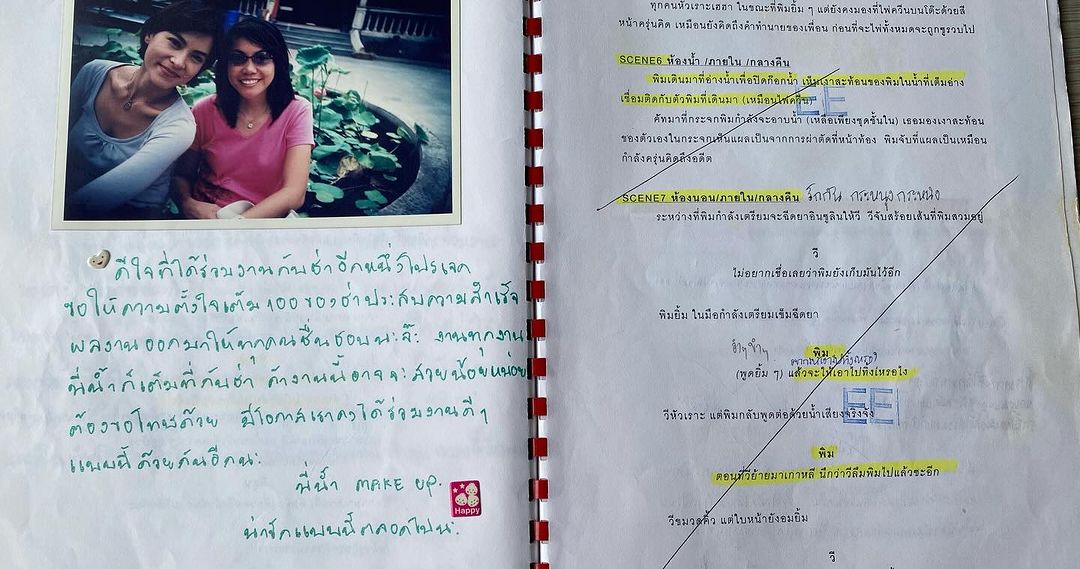 ดีใจที่ได้ร่วมงานกับช่าอีกหนึ่งโปรเจค
ขอให้ความตั้งใจเต็ม 100 ของช่าประสบความสำเร็จ
ผลงานออกมาให้ทุกคนชื่นชอบนะจ๊ะ งานทุกงาน
พี่น้ำก็เต็มที่กับช่า ถ้างานนี้อาจจะสวยน้อยหน่อย
ต้องขอโทษด้วย มีโอกาสเราคงได้ร่วมงานดีๆ
แบบนี้ด้วยกันอีกนะ
พี่น้ำ MAKE UP.
Happy
น่ารักแบบนี้ตลอดไปนะ
ทุกคนหัวเราะเฮฮา ในขณะที่พิมยิ้ม ๆ แต่ยังคงมองที่ไพ่ควีนบนโต๊ะด้วยสี
หน้าครุ่นคิด เหมือนยังคิดถึงคำทำนายของเพื่อน ก่อนที่จะไพ่ทั้งหมดจะถูกชูรวบไป
SCENE6 ห้องน้ำ /ภายใน /กลางคืน
พิมเดินมาที่อ่างน้ำเพื่อปิดก๊อกน้ำ เห็นเงาสะท้อนของพิมในน้ำที่เต็มอ่าง
เชื่อมติดกับตัวพิมที่เดินมา (เหมือนไพ่ควีน)
EE
คัทมาที่กระจกพิมกำลังจะอาบน้ำ (เหลือเพียงชุดชั้นใน) เธอมองเงาสะท้อน
ของตัวเองในกระจกเห็นแผลเป็นจากการผ่าตัดที่หน้าท้อง พิมจับที่แผลเป็นเหมือน
กำลังครุ่นคิดถึงอดีต
SCENE7 ห้องนอน/ภายใน/กลางคืน รักกัน กระหนุง กระหนิง
ระหว่างที่พิมกำลังเตรียมจะฉีดยาอินซูลินให้วี วีจับสร้อยเส้นที่พิมสวมอยู่
วี
ไม่อยากเชื่อเลยว่าพิมยังเก็บมันไว้อีก
พิมยิ้ม ในมือกำลังเตรียมเข็มฉีดยา
ขำๆ
พิม
(พูดยิ้ม ๆ) แล้วจะให้เอาไปทิ้งเหรอไง
EE
วีหัวเราะ แต่พิมกลับพูดต่อด้วยน้ำเสียงจริงจัง
พิม
ตอนที่วีย้ายมาเกาหลี นึกว่าวีลืมพิมไปแล้วซะอีก
วีขมวดคิ้ว แต่ใบหน้ายังอมยิ้ม
วี